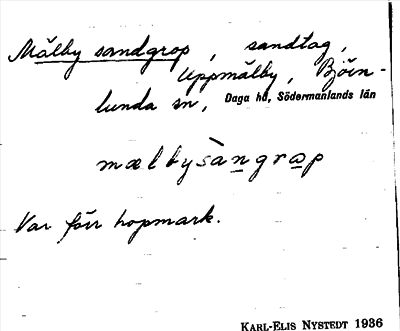 Målby sandgrop, sandtag,
Uppmälby, Björn-
lunda sn, Daga hd, Södermanlands län
mælbysàngrap
Var förr hopmark.
KARL-ELIS NYSTEDT 1936